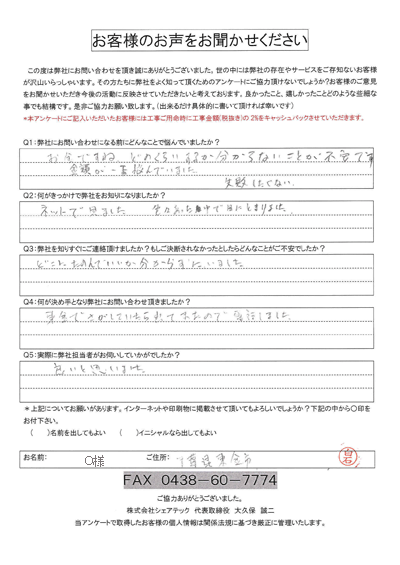 お客様のお声をお聞かせください
この度は弊社にお問い合わせを頂き誠にありがとうございました。世の中には弊社の存在やサービスをご存知ないお客様
が沢山いらっしゃいます。その方たちに弊社をよく知って頂くためのアンケートにご協力頂けないでしょうか？お客様のご意見
をお聞かせいただき今後の活動に反映させていただきたいと考えております。良かったこと、嬉しかったことどのような些細な
事でも結構です。是非ご協力お願い致します。（出来るだけ具体的に書いて頂ければ幸いです）
*本アンケートにご記入いただいたお客様には工事ご用命時に工事金額(税抜き)の 2%をキャッシュバックさせていただきます。
Q1：弊社にお問い合わせになる前にどんなことで悩んでいましたか？
お金ですね どのくらい かるか分からないことが不安で
金額が一番悩んでいました。
失敗したくない。
Q2：何がきっかけで弊社をお知りになりましたか？
ネットで見ました 中で目にとまりました。
Q3：弊社を知りすぐにご連絡頂けましたか？もしご決断されなかったとしたらどんなことがご不安でしたか？
どこにたのんでいいか分からずにいました。
Q4：何が決め手となり弊社にお問い合わせ頂きましたか？
東金でさがしていたら出て来たので電話しました。
Q5：実際に弊社担当者がお伺いしていかがでしたか？
良いと思いました。
＊上記についてお願いがあります。インターネットや印刷物に掲載させて頂いてもよろしいでしょうか？下記の中から〇印を
お付下さい。
（　　）名前を出してもよい　（　　）イニシャルなら出してもよい
お名前: 〇様 ご住所: 千葉県東金市 白石
FAX 0438-60-7774
ご協力ありがとうございました。
株式会社シェアテック 代表取締役 大久保 誠二
当アンケートで取得したお客様の個人情報は関係法規に基づき厳正に管理いたします。